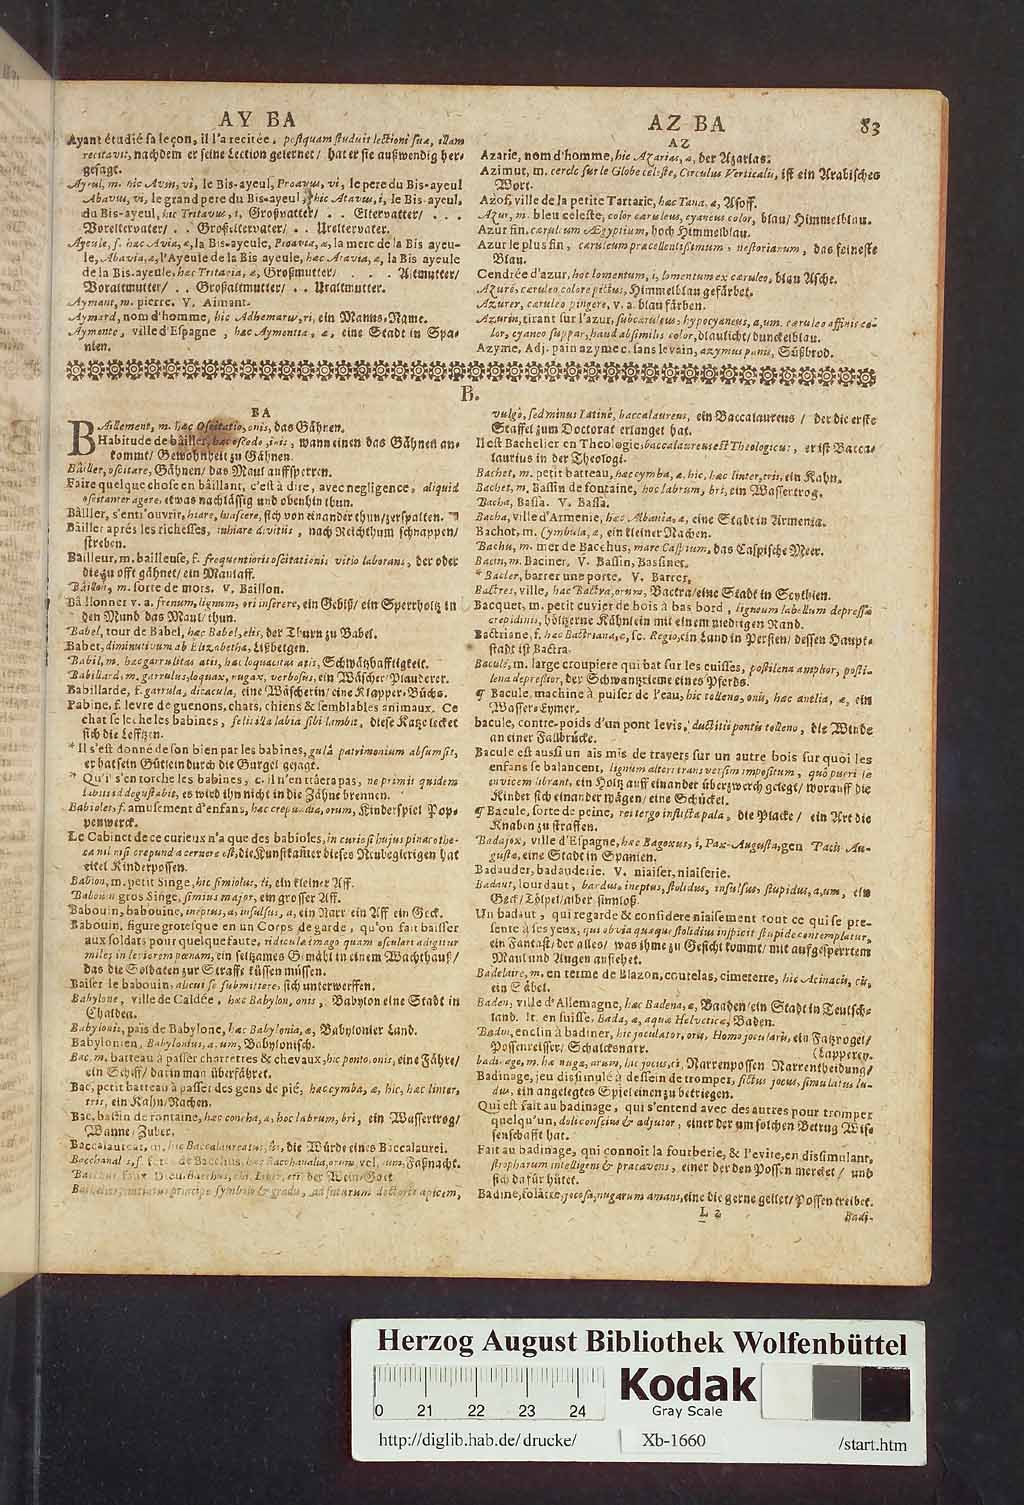 AY BA
Ayant étudié sa leçon, il l'a recitée, postquam studuit lectioni suæ, illam
recitavit, nachdem er seine Lection gelernet / hat er sie außwendig her-
gesagt.
Ayeul, m. hic Avus, vi, le Bis-ayeul, Proavus, vi, le pere du Bis-ayeul
Abavus, vi, le grand pere du Bis-ayeul, hic Atavus, i, le Bis-ayeul
du Bis-ayeul, hic Tritavus, i, Großvatter / . . Eltervatter / . . .
Voreltervater / . . Großeltervatter / . . Ureltervater.
Ayeule, f. hæc Avia, æ, la Bis-ayeule, Proavia, æ, la mere de la Bis-ayeu-
le, Abavia, æ, l'Ayeule de la Bis ayeule, hæc Atavia, æ, la Bis ayeule
de la Bis-ayeule, hæc Tritavia, æ, Großmutter / . . . Altmutter /
Voraltmutter / . . Großaltmutter / . . Uraltmutter.
Aymant, m. pierre. V. Aimant.
Aymard, nom d'homme, hic Adhemarus, ri, ein Manns-Name.
Aymente, ville d'Espagne, hæc Aymentia, æ, eine Stadt in Spa-
nien.
AZ BA
83
AZ
Azarie, nom d'homme, hic Azarias, æ, der Azarias.
Azimut, m. cercle sur le Globe celeste, Circulus Verticalis, ist ein Arabisches
Wort.
Azof, ville de la petite Tartarie, hæc Tana, æ, Assoff.
Azur, m. bleu celeste, color cæruleus, cyaneus color, blau / Himmelblau.
Azur fin, cæruleum Ægyptium, hoch Himmelblau.
Azur le plus fin, cæruleum præcellentissimum, nestorianum, das feineste
Blau.
Cendrée d'azur, hoc lomentum, i, lomentum ex cæruleo, blau Asche.
Azuré, cæruleo colore pictus, Himmelblau gefärbet.
Azurer, cæruleo pingere, v. a. blau färben.
Azurin, tirant sur l'azur, subcæruleus, hypocyaneus, a, um. cæruleo affinis co-
lor, cyaneo suppar, haud absimilis color, blaulicht / dunckelblau.
Azyme, Adj. pain azyme c. sans levain, azymus panis, Süßbrod.
B.
BA
BAillement, m. hæc Oscitatio, onis, das Gähren.
Habitude de bâiller, hæc oscedo, inis, wann einen das Gähnen an-
kommt / Gewohnheit zu Gähnen.
Bâiller, oscitare, Gähnen / das Maul auffsperren.
Faire quelque chose en bâillant, c'est à dire, avec negligence, aliquid
oscitanter agere, etwas nachlässig und obenhin thun.
Bâiller, s'entr'ouvrir, hiare, hiascere, sich von einander thun / zerspalten.
Bâiller aprés les richesses, inhiare divitiis, nach Reichthum schnappen /
streben.
Bailleur, m. bailleuse, f. frequentioris oscitationis vitio laborans, der oder
die zu offt gähnet / ein Maulaff.
Bâillon, m. sorte de mors. V. Baillon.
Bâillonner v. a. frenum, lignum, ori inserere, ein Gebiß / ein Sperrholtz in
den Mund das Maul / thun.
Babel, tour de Babel, hæc Babel, elis, der Thurn zu Babel.
Babet, diminutivum ab Elizabetha, Lißbetgen.
Babil, m. hæc garrulitas atis, hæc loquacitas atis, Schwätzhafftigkeit.
Babillard, m. garrulus, loquax, nugax, verbosus, ein Wäscher / Plauderer.
Babillarde, f. garrula, dicacula, eine Wäscherin / eine Klapper-Büchs.
Babine, f. levre de guenons, chats, chiens & semblables animaux. Ce
chat se leche les babines, felis illa labia sibi lambit, diese Katze lecket
sich die Leffzen.
* Il s'est donné de son bien par les babines, gulâ patrimonium absumsit,
er hat sein Gütlein durch die Gurgel gejagt.
* Qu'il s'en torche les babines, c. il n'en tâtera pas, ne primis quidem
labiis id degustabit, es wird ihn nicht in die Zähne brennen.
Babioles, f. amusement d'enfans, hæc crepundia, orum, Kinderspiel Pop-
penwerck.
Le Cabinet de ce curieux n'a que des babioles, in curiosi hujus pinacothe-
ca nil nisi crepundia cernere est, die Kunstkamer dieses Neubegierigen hat
eitel Kinderpossen.
Babion, m. petit Singe, hic simiolus, li, ein kleiner Aff.
Babouin gros Singe, simius major, ein grosser Aff.
Babouin, babouine, ineptus, a, insulsus, a, ein Narr / ein Aff ein Geck.
Babouin, figure grotesque en un Corps de garde, qu'on fait baisser
aux soldats pour quelque faute, ridicula imago quam osculari adigitur
miles in leviorem pœnam, ein seltzames Gemähl in einem Wachthauß /
das die Soldaten zur Straffe küssen müssen.
Baiser le babouin, alicui se submittere, sich unterwerffen.
Babylone, ville de Caldée, hæc Babylon, onis, Babylon eine Stadt in
Chaldea.
Babylonie, païs de Babylone, hæc Babylonia, æ, Babylonier Land.
Babylonien, Babylonius, a, um, Babylonisch.
Bac, m. batteau à passer charrettes & chevaux, hic ponto, onis, eine Fähre /
ein Schiff / darin man überfähret.
Bac, petit batteau à passer des gens de pié, hæc cymba, æ, hic, hæc linter,
tris, ein Kahn / Nachen.
Bac, bassin de fontaine, hæc concha, æ, hoc labrum, bri, ein Wassertrog /
Wanne / Zuber.
Baccalaureat, m. hic Baccalaureatus, ûs, die Würde eines Baccalaurei.
Bacchanales, f. fêtes de Bacchus, hæc Bacchanalia, orum vel, ium, Faßnacht.
Bacchus, faux Dieu, Bacchus, chi, Liber, eri der Wein-Gott
Bachelier, initiatus principe symbolo & gradu, ad futurum doctoris apicem,
vulgò, sed minus Latinè, baccalaureus, ein Baccalaureus / der die erste
Staffel zum Doctorat erlanget hat.
Il est Bachelier en Theologie, baccalaureus est Theologicus, er ist Bacca-
laurius in der Theologi.
Bachet, m. petit batteau, hæc cymba, æ, hic, hæc linter, tris, ein Kahn.
Bachet, m. Bassin de fontaine, hoc labrum, bri, ein Wassertrog.
Bacha, Bassa. V. Bassa.
Bacha, ville d'Armenie, hæc Albania, æ, eine Stadt in Armenia.
Bachot, m. Cymbula, æ, ein kleiner Nachen.
Bachu, m. mer de Bacchus, mare Caspium, das Caspische Meer.
Bacin, m. Baciner. V. Bassin, Bassiner.
* Bacler, barrer une porte. V. Barrer.
Bactres, ville, hæc Bactra, orum, Bactra / eine Stadt in Scythien.
Bacquet, m. petit cuvier de bois à bas bord, ligneum labellum depressæ
crepidinis, höltzerne Kähnlein mit einem niedrigen Rand.
Bactriane, f. hæc Bactriana, æ, sc. Regio, ein Land in Persien / dessen Haupt-
stadt ist Bactra.
Baculé, m. large croupiere qui bat sur les cuisses, postilena amplior, posti-
lena depressior, der Schwantzrieme eines Pferds.
¶ Bacule, machine à puiser de l'eau, hic tolleno, onis, hæc antlia, æ, ein
Wasser-Eymer.
bacule, contre-poids d'un pont levis, ductitii pontis tolleno, die Winde
an einer Fallbrücke.
Bacule est aussi un ais mis de travers sur un autre bois sur quoi les
enfans se balancent, lignum alteri transversim impositum, quo pueri se
invicem librant, ein Holtz auff einander überzwerch gelegt / worauff die
Kinder sich einander wägen / eine Schückel.
¶ Bacule, sorte de peine, rei tergo inflicta pala, die Placke / ein Art die
Knaben zu straffen.
Badajox, ville d'Espagne, hæc Bagoxus, i, Pax-Augusta, gen Pacis Au-
gustæ, eine Stadt in Spanien.
Badauder, badauderie. V. niaiser, niaiserie.
Badaut, lourdaut, bardus, ineptus, stolidus, insulsus, stupidus, a, um, ein
Geck / Tölpel / alber sinnloß.
Un badaut, qui regarde & considere niaisement tout ce qui se pre-
sente à ses yeux, qui obvia quæque stolidius inspicit stupide contemplatur,
ein Fantast / der alles / was ihme zu Gesicht kommt / mit auffgesperrtem
Maul und Augen ansiehet.
Badelaire, m. en terme de Blazon, coutelas, cimeterre, hic Acinacis, cis,
ein Säbel.
Baden, ville d'Allemagne, hæc Badena, æ, Baaden / ein Stadt in Teutsch-
land. It. en suisse, Bada, æ, aquæ Helveticæ, Baden.
Badin, enclin à badiner, hic joculator, oris, Homo jocularis, ein Fatzvogel /
Possenreisser / Schalcksnarr.
(Lapperey.
badinage, m. hæ nugæ, arum, hic jocus, ci, Narrenpossen Narrentheidung /
Badinage, jeu dissimulé à dessein de tromper, fictus jocus, simulatus lu-
dus, ein angelegtes Spiel einen zu betriegen.
Qui est fait au badinage, qui s'entend avec des autres pour tromper
quelqu'un, doli conscius & adjutor, einer der um solchen Betrug Wis-
senschafft hat.
Fait au badinage, qui connoit la fourberie, & l'evite, en dissimulant,
stropharum intelligens & præcavens, einer der den Possen mercket / und
sich dafür hütet.
Badine, folâtre, jocosa, nugarum amans, eine die gerne geilet / Possen treibet.
L 2
Badi-
Herzog August Bibliothek Wolfenbüttel
Kodak
Gray Scale
0 21 22 23 24
http://diglib.hab.de/drucke/
Xb-1660
/start.htm